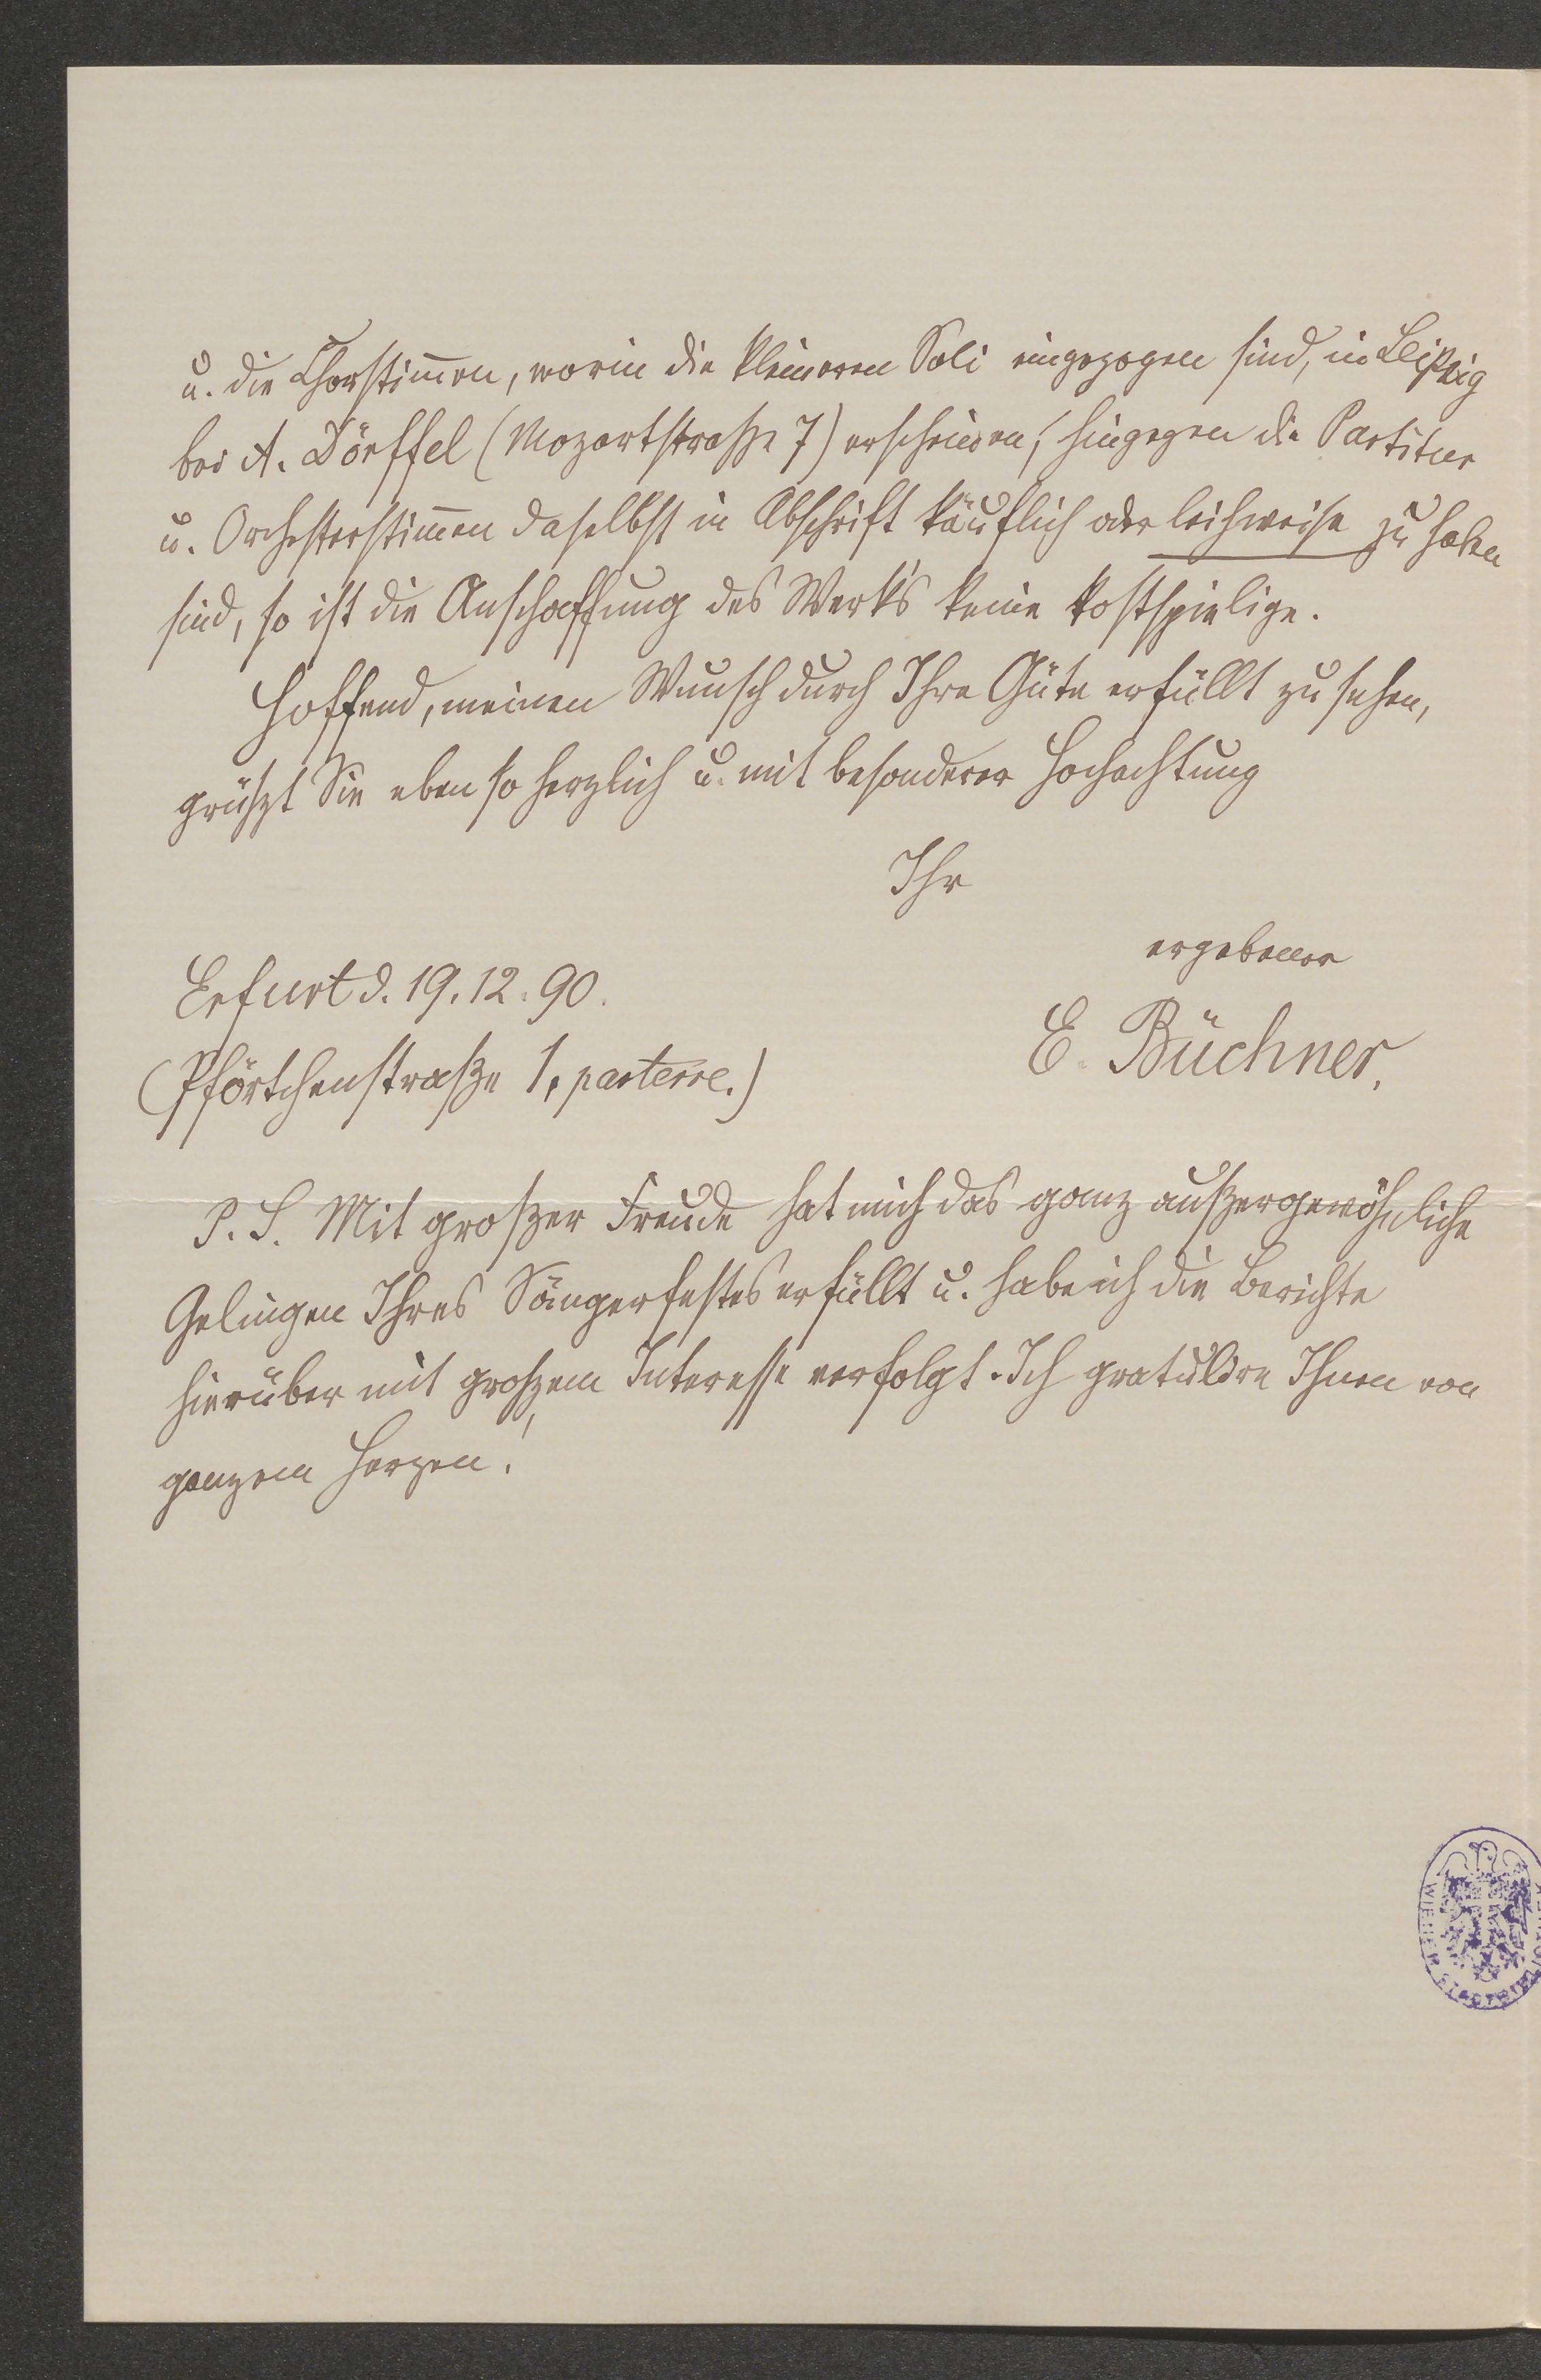 u. die Chorstim̄en, worin die kleineren Soli eingezogen sind, in Leipzig
bei A. Dörffel (Mozartstraße 7) erschienen, hingegen die Partitur
u. Orchesterstim̄en daselbst in Abschrift käuflich oder leihweise zu haben
sind, so ist die Anschaffung des Werk's keine kostspielige.
Hoffend, meinen Wunsch durch Ihre Güte erfüllt zu sehen,
grüßt Sie eben so herzlich u. mit besonderer Hochachtung
Ihr
ergebener
Erfurt d. 19. 12. 90.
E. Büchner.
(Pförtchenstraße 1, parterre.)
P. S. Mit großer Freude hat mich das ganz außergewöhnliche
Gelingen Ihres Sängerfestes erfüllt u. habe ich die Berichte
hierüber mit großem Interesse verfolgt. Ich gratulire Ihnen von
ganzem Herzen!
WIENER STADTBI